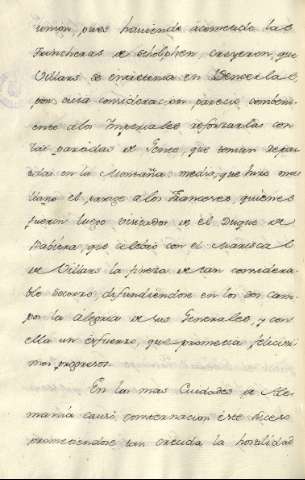 union, pues haviendo acometido las
Trincheras de Scholphen, creyeron, que
Villars se enreciera en
con cuia consideracion parecio combeni-
ente à los Imperiales reforzarlas con
las partidas de Gente, que tenian repar-
tidas en la Montaña; medio, que hizo mas
llano el parage a los Franceses, quienes
fueron luego recividos de el Duque de
Babiera, que celebrò con el Mariscal
de Villars la fineza de tan considera-
ble socorro, difundiendose en los dos cam-
pos la alegria de sus Generales, y con
ella un esfuerzo, que prometia felicisi-
mos progresos.
En las mas Ciudades de Ale-
mania causò consternacion este suceso
prometiendose tan crecida la hostilidad